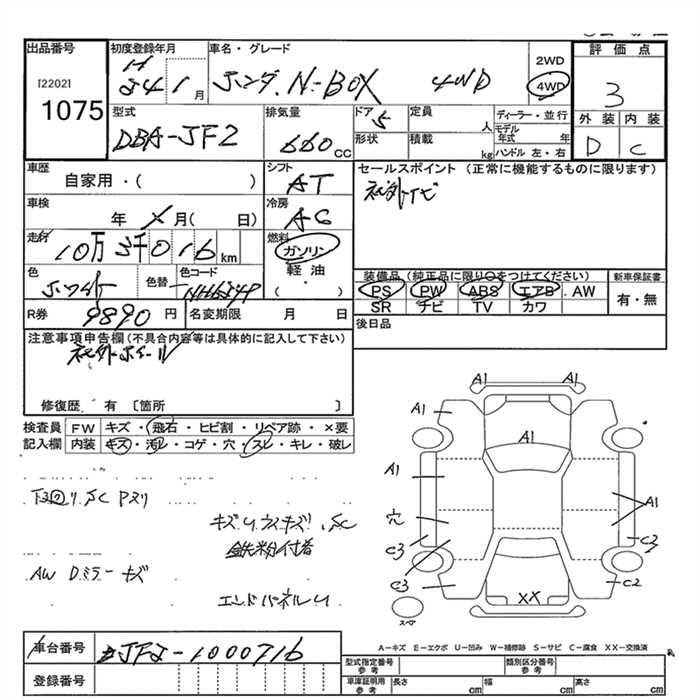 出品番号 初度登録年月 車名・グレード 2WD 評価点
[2202] H24 1月 ホンダ N-BOX 4WD 4WD 3
1075 型式 排気量 ドア 5 定員 人 ディーラー・並行 外装 内装
DBA-JF2 660CC 形状 積載 kg モデル年式 年 D C
ハンドル 左・右
車歴 シフト セールスポイント (正常に機能するものに限ります)
自家用・( ) AT 社外ナビ
車検 冷房
年 月( 日) AC
走行 燃料
10万3千016km ガソリン
色 色替 色コード 軽油 装備品 (純正品に限り○をつけてください) 新車保証書
ホワイト NH624P ・( ) PS PW ABS エアB AW 有・無
SR ナビ TV カワ
R券 9890円 名変期限 月 日 後日品
注意事項申告欄(不具合内容等は具体的に記入して下さい)
社外ホイール
修復歴 有 [箇所 ]
検査員 FW キズ・飛石・ヒビ割・リペア跡・×要
記入欄 内装 キズ・汚レ・コゲ・穴・スレ・キレ・破レ
下回リSC
キズUウスキズ、SC
鉄粉付着
AW Dミラーキズ
エンドパネルU
A1 A1
A1 A1
A1
A1
穴
C3 C3
C3 C2
XX
スペア
A-キズ E-エクボ U-凹み W-補修跡 S-サビ C-腐食 XX-交換済
車台番号 JF2-1000716
登録番号
型式指定番号 参考 類別区分番号 参考
車庫証明用 参考 長さ cm 幅 cm 高さ cm